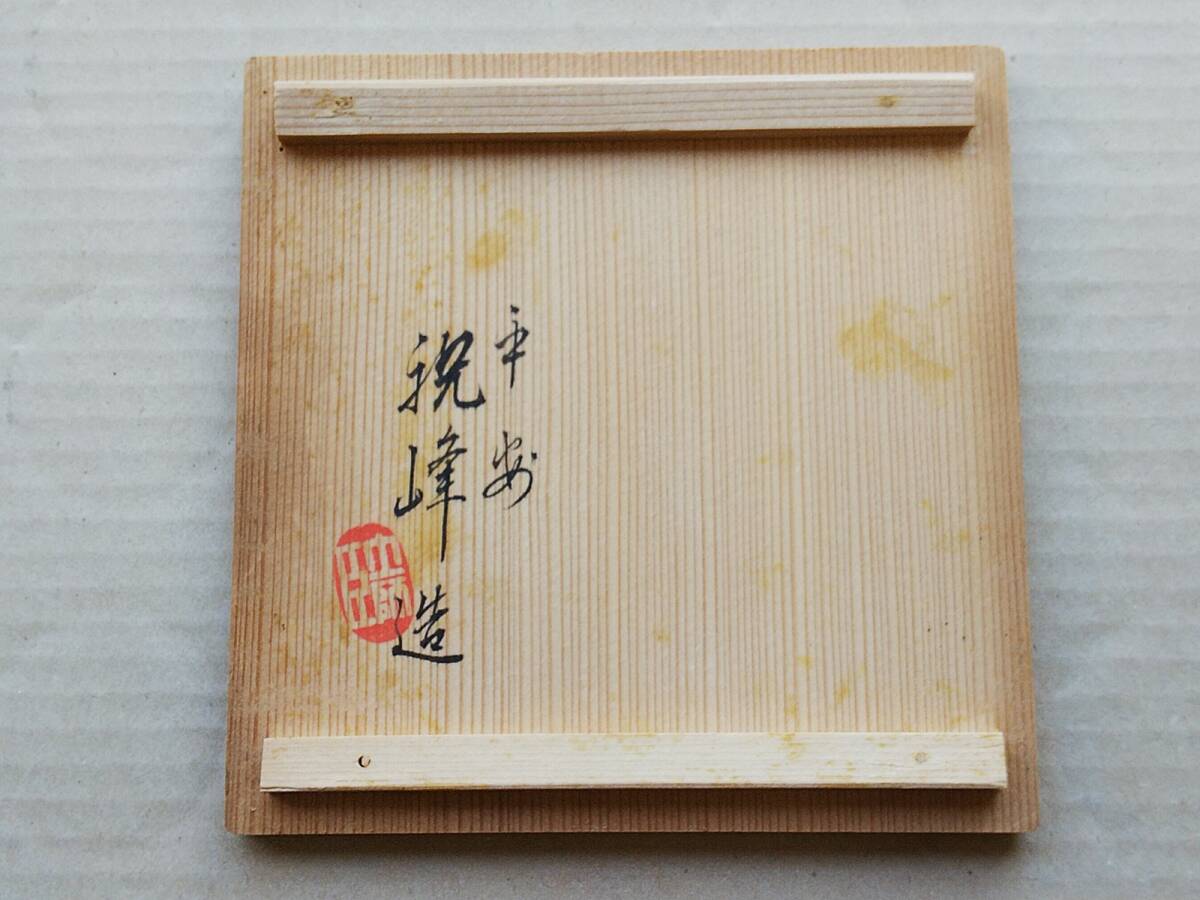 平安
祝峰造